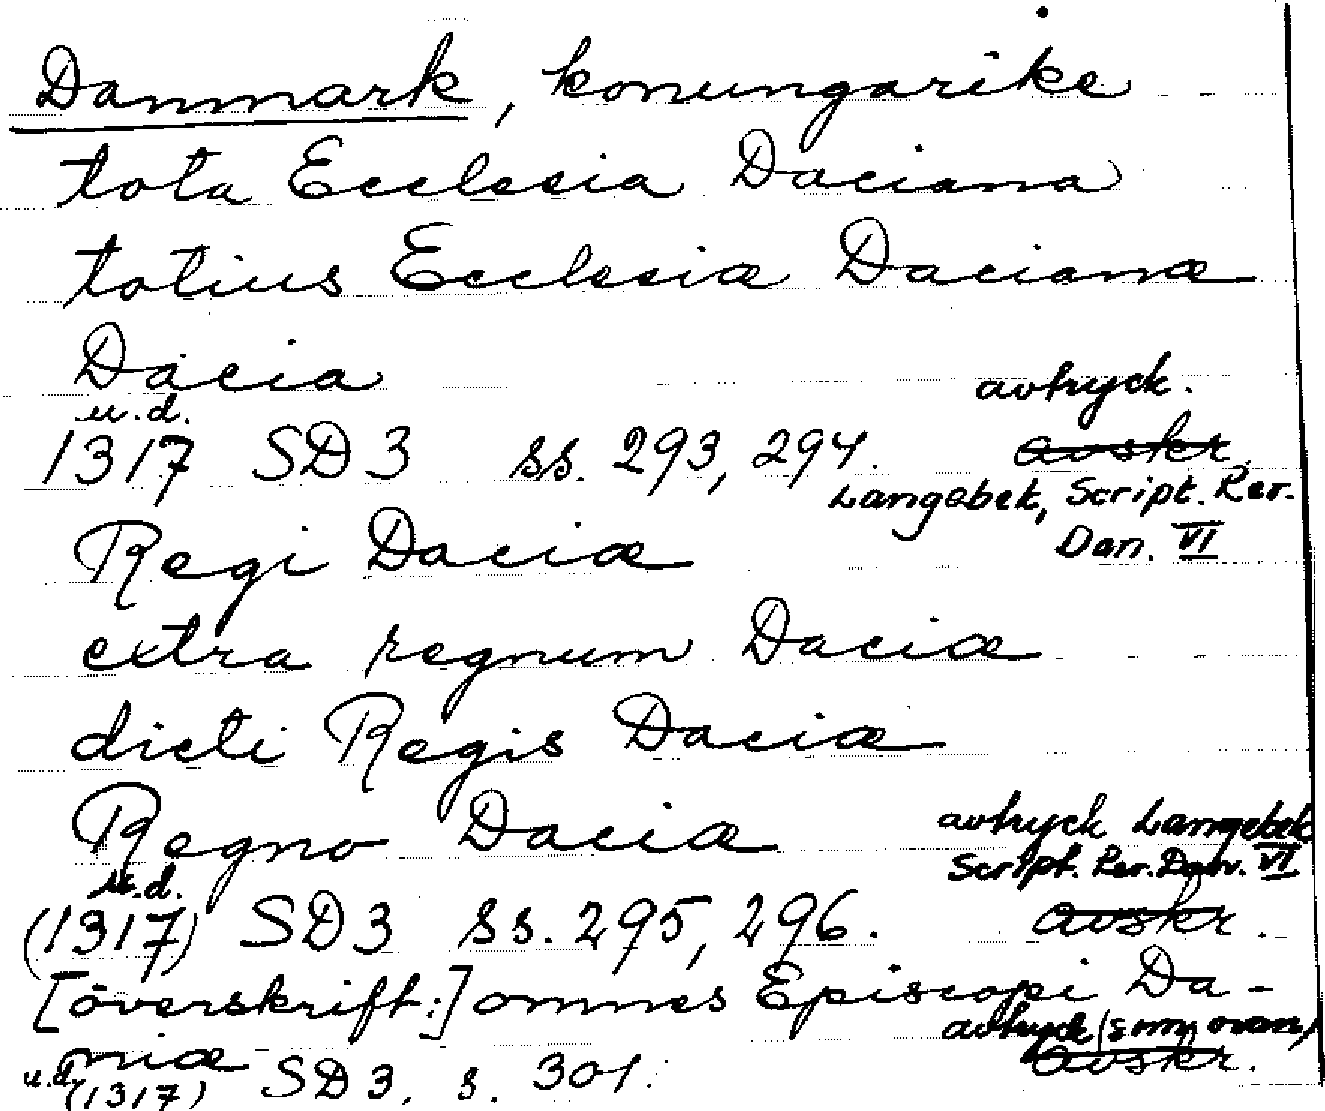 Danmark, konungarike
tota Ecclesia Daciana
totius Ecclesiæ Dacianæ
Dacia
avtryck.
u.d.
1317 SD 3 ss. 293, 294. avskr.
Langebek, Script. Rer.
Dan. VI
Regi Daciæ
extra regnum Daciæ
dicti Regis Daciæ
Regno Daciæ
avtryck Langebek
Script. Rer. Dan. VI
u.d.
(1317) SD 3 ss. 295, 296. avskr.
[överskrift:] omnes Episcopi Da-
avtryck (som ovan)
niæ avskr.
u.d. (1317) SD 3. s. 301.